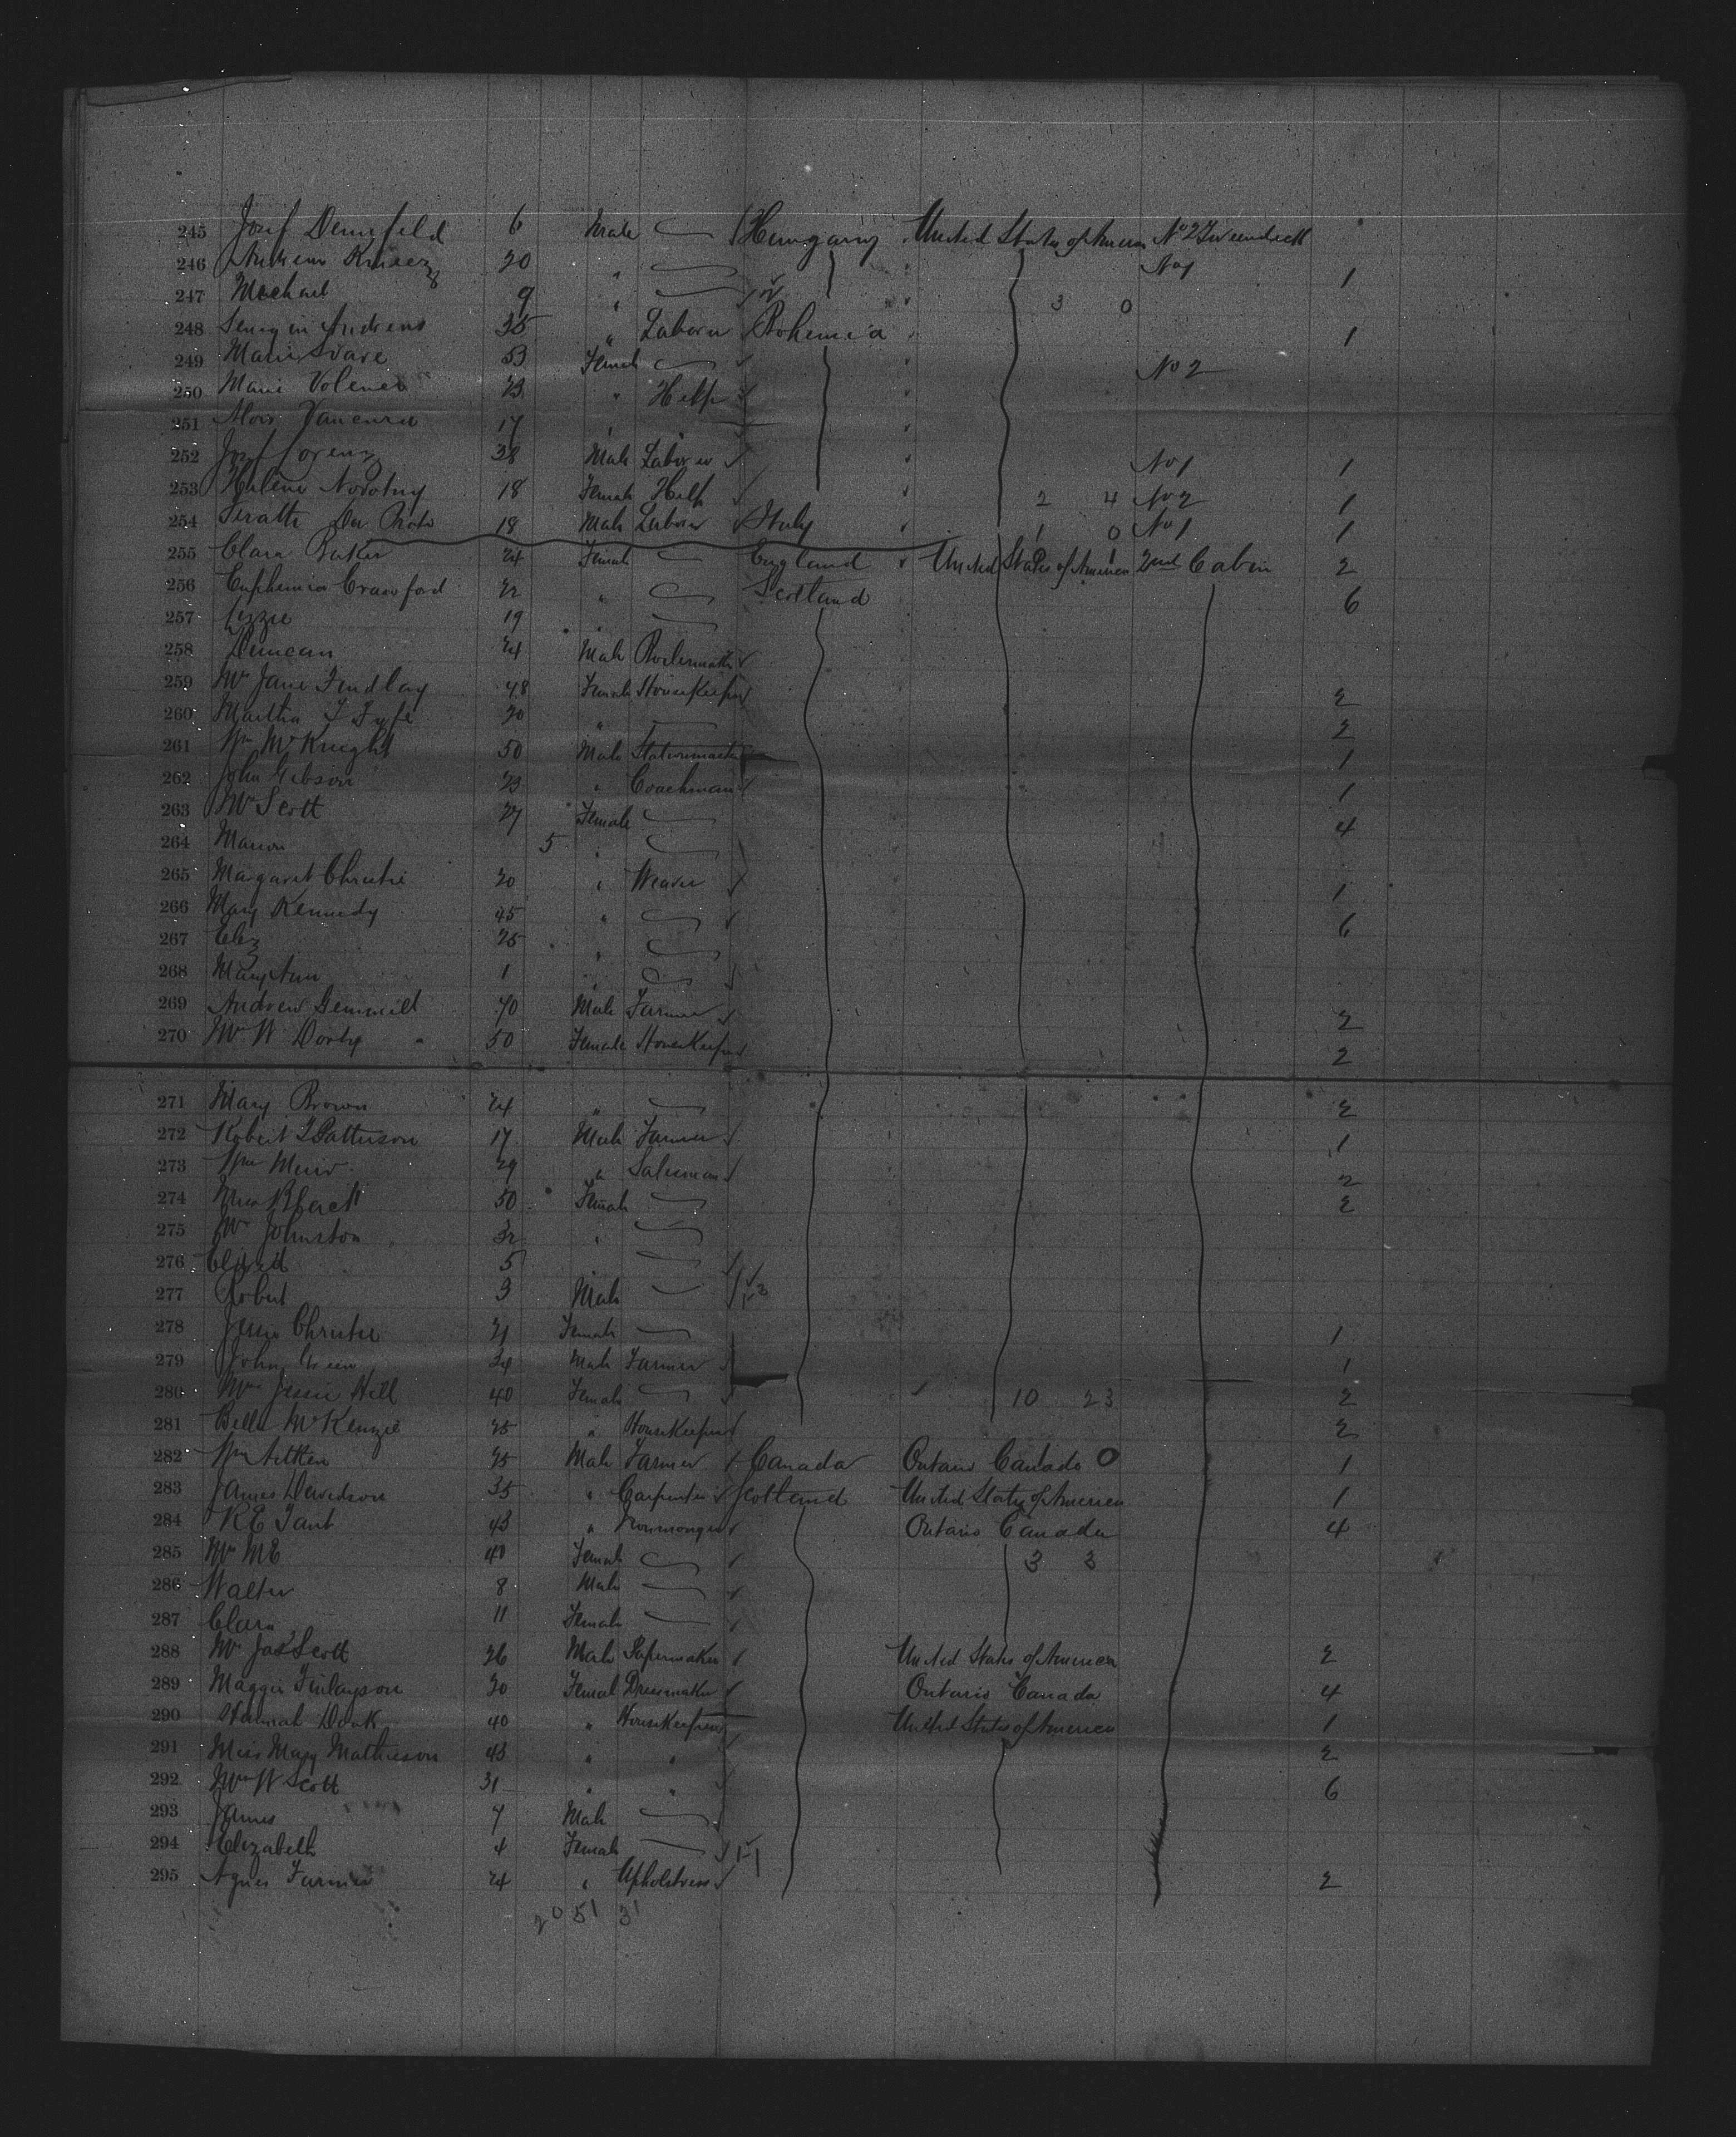 245 Josef Dennfeld 6 Male Hungary United States of America No 2 Tweendeck
246 20 " No 1 1
247 Michael 9 " 3 0
248 Andreas 35 " Laborer Bohemia 1
249 Marie Svare 53 Female No 2
250 Marie 23 " Help
251 Alois 17 " "
252 Josef Lorenz 38 Male Laborer No 1 1
253 Helene Novotny 18 Female Help 2 4 No 2 1
254 18 Male Laborer Italy 1 0 No 1 1
255 Clara Baker 24 Female England United States of America 2nd Cabin 2
256 Euphemia Crawford 22 " Scotland 6
257 Lizzie 19 "
258 Duncan 24 Male Boilermaker
259 Mrs Jane Findlay 48 Female Housekeeper 2
260 Martha T Fyfe 20 " 2
261 Wm McKnight 50 Male Stationmaster 1
262 John Gibson 23 " Coachman 1
263 Mrs Scott 27 Female 4
264 Marion 5 "
265 Margaret Christie 20 " Weaver 1
266 Mary Kennedy 45 " 6
267 Eliz 25 "
268 Mary Ann 1 "
269 Andrew Gemmill 40 Male Farmer 2
270 Mrs W 50 Female Housekeeper 2
271 Mary Brown 24 " 2
272 Robert Patterson 17 Male Farmer 1
273 Wm Muir 29 " Salesman 2
274 50 Female 2
275 Mrs Johnston 32 "
276 5 "
277 Robert 3 Male
278 Jessie Christie 21 Female 1
279 John Green 34 Male Farmer 1
280 Mrs Jessie Hill 40 Female 10 23 2
281 Bella McKenzie 25 " Housekeeper 2
282 Wm Aitken 25 Male Farmer Canada Ontario Canada 0 1
283 James Davidson 35 " Carpenter Scotland United States of America 1
284 R E 43 " Ironmonger Ontario Canada 4
285 Mrs M E 40 Female 3 3
286 Walter 8 Male
287 Clara 11 Female
288 Mr Jas Scott 26 Male Papermaker United States of America 2
289 Maggie Finlayson 20 Female Dressmaker Ontario Canada 4
290 Hannah Doak 40 " Housekeeper United States of America 1
291 Miss Mary Mathieson 43 " " 2
292 Mrs W Scott 31 " " 6
293 James 7 Male
294 Elizabeth 4 Female
295 Agnes 24 " Upholstress 2
20 51 31